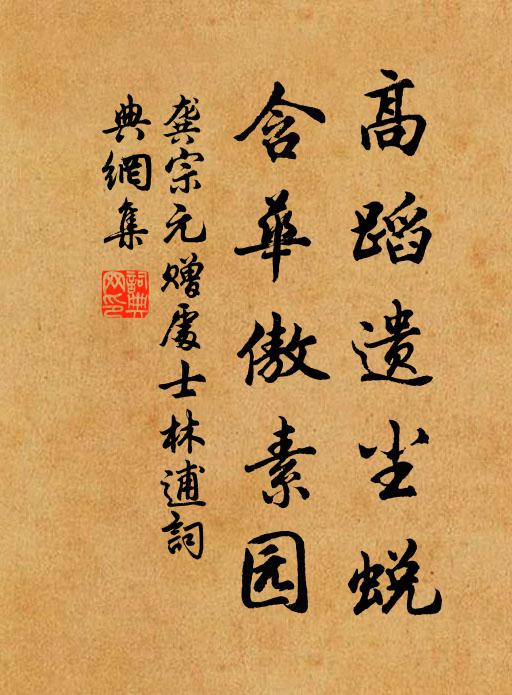 高蹈遗尘蜕
含華傲素园
龚宗元赠處士林逋詞
典網集
詞典
网印